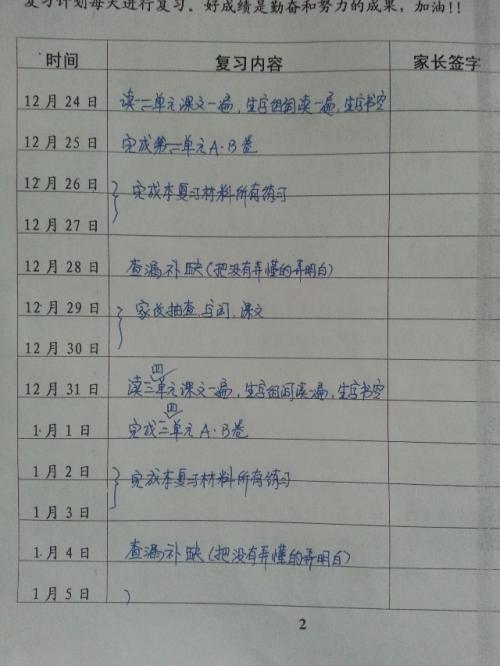 复习计划每天进行复习。好成绩是勤奋和努力的成果，加油!!
时间 复习内容 家长签字
12月24日 读一二单元课文一遍，生字组词读一遍，生字书空
12月25日 完成第一二单元A·B卷
12月26日 完成本复习材料所有练习
12月27日
12月28日 查漏补缺(把没有弄懂的弄明白)
12月29日 家长抽查 课文
12月30日
四
12月31日 读三单元课文一遍，生字组词读一遍，生字书空
四
1月1日 完成三单元A·B卷
1月2日 完成本复习材料所有练习
1月3日
1月4日 查漏补缺(把没有弄懂的弄明白)
1月5日
2